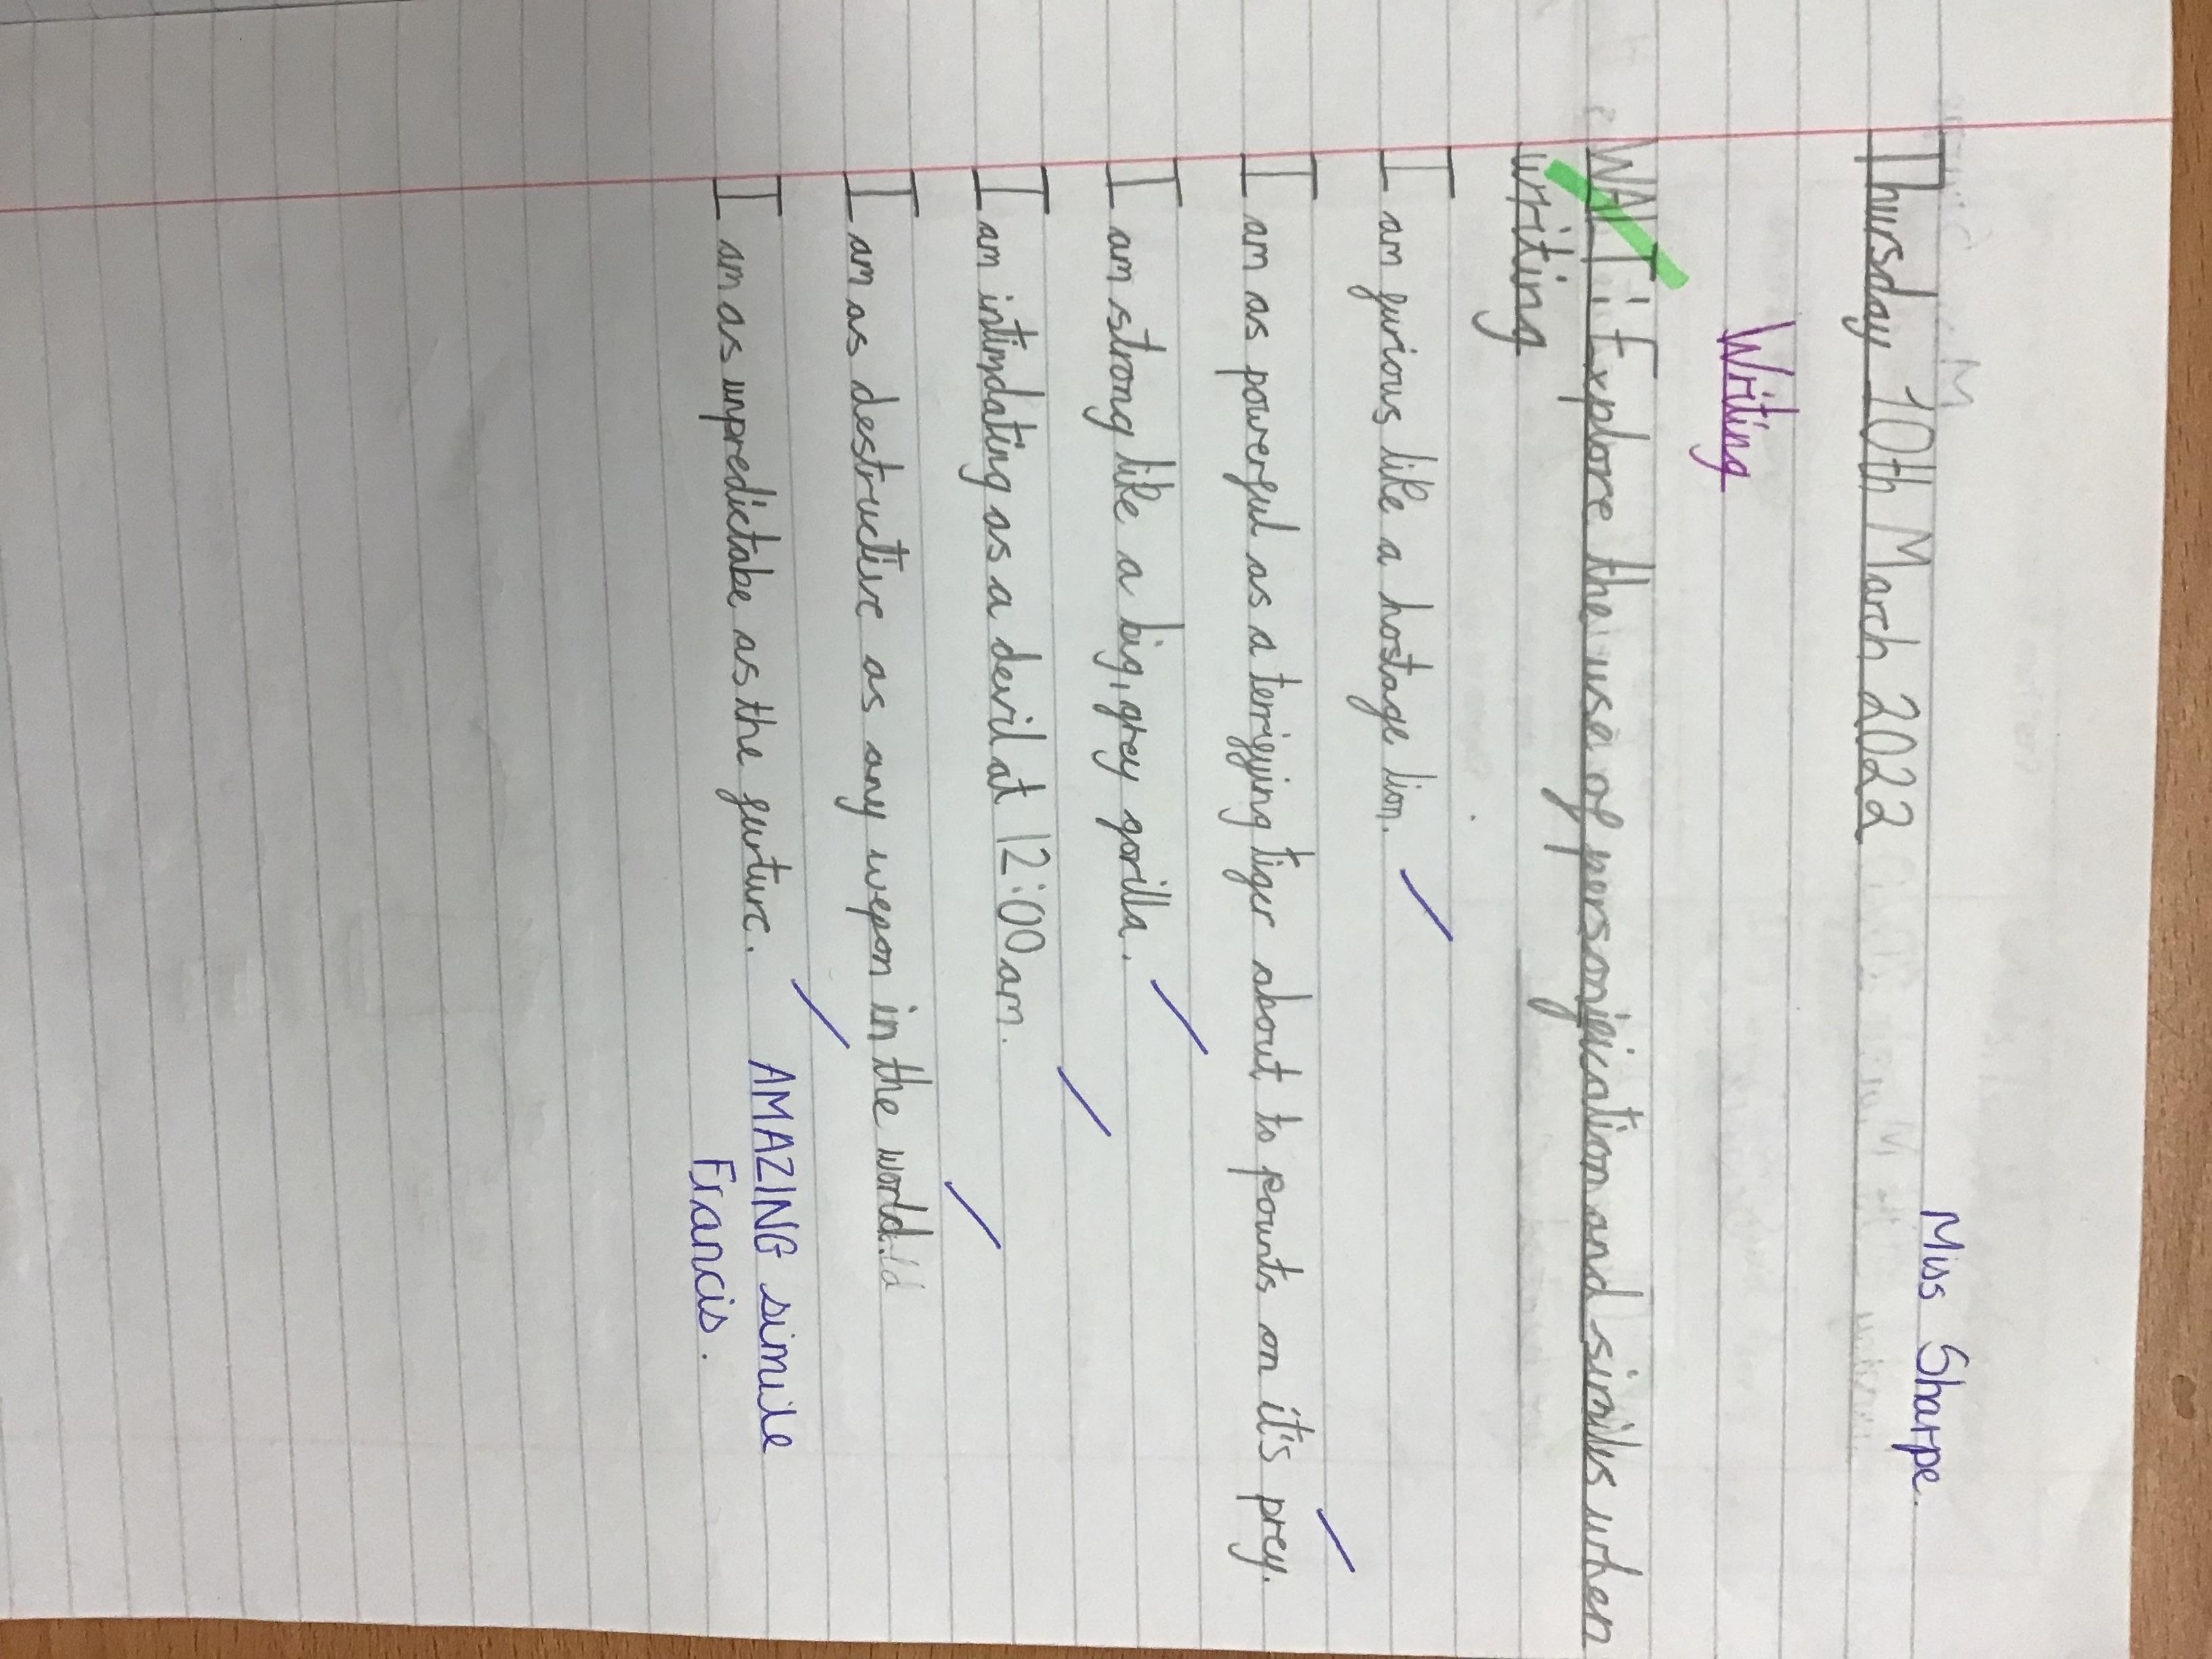 Miss Sharpe.
Thursday 10th March 2022
Writing
WALT: Explore the use of personification and similes when
writing
I am furious like a hostage lion.
I am as powerful as a terrifying tiger about to pounts on it's prey.
I am strong like a big, grey gorilla.
I am intimdating as a devil at 12:00am.
I am as destructive as any wepon in the world.
I am as unpredictabe as the furture.
AMAZING simile
Francis.